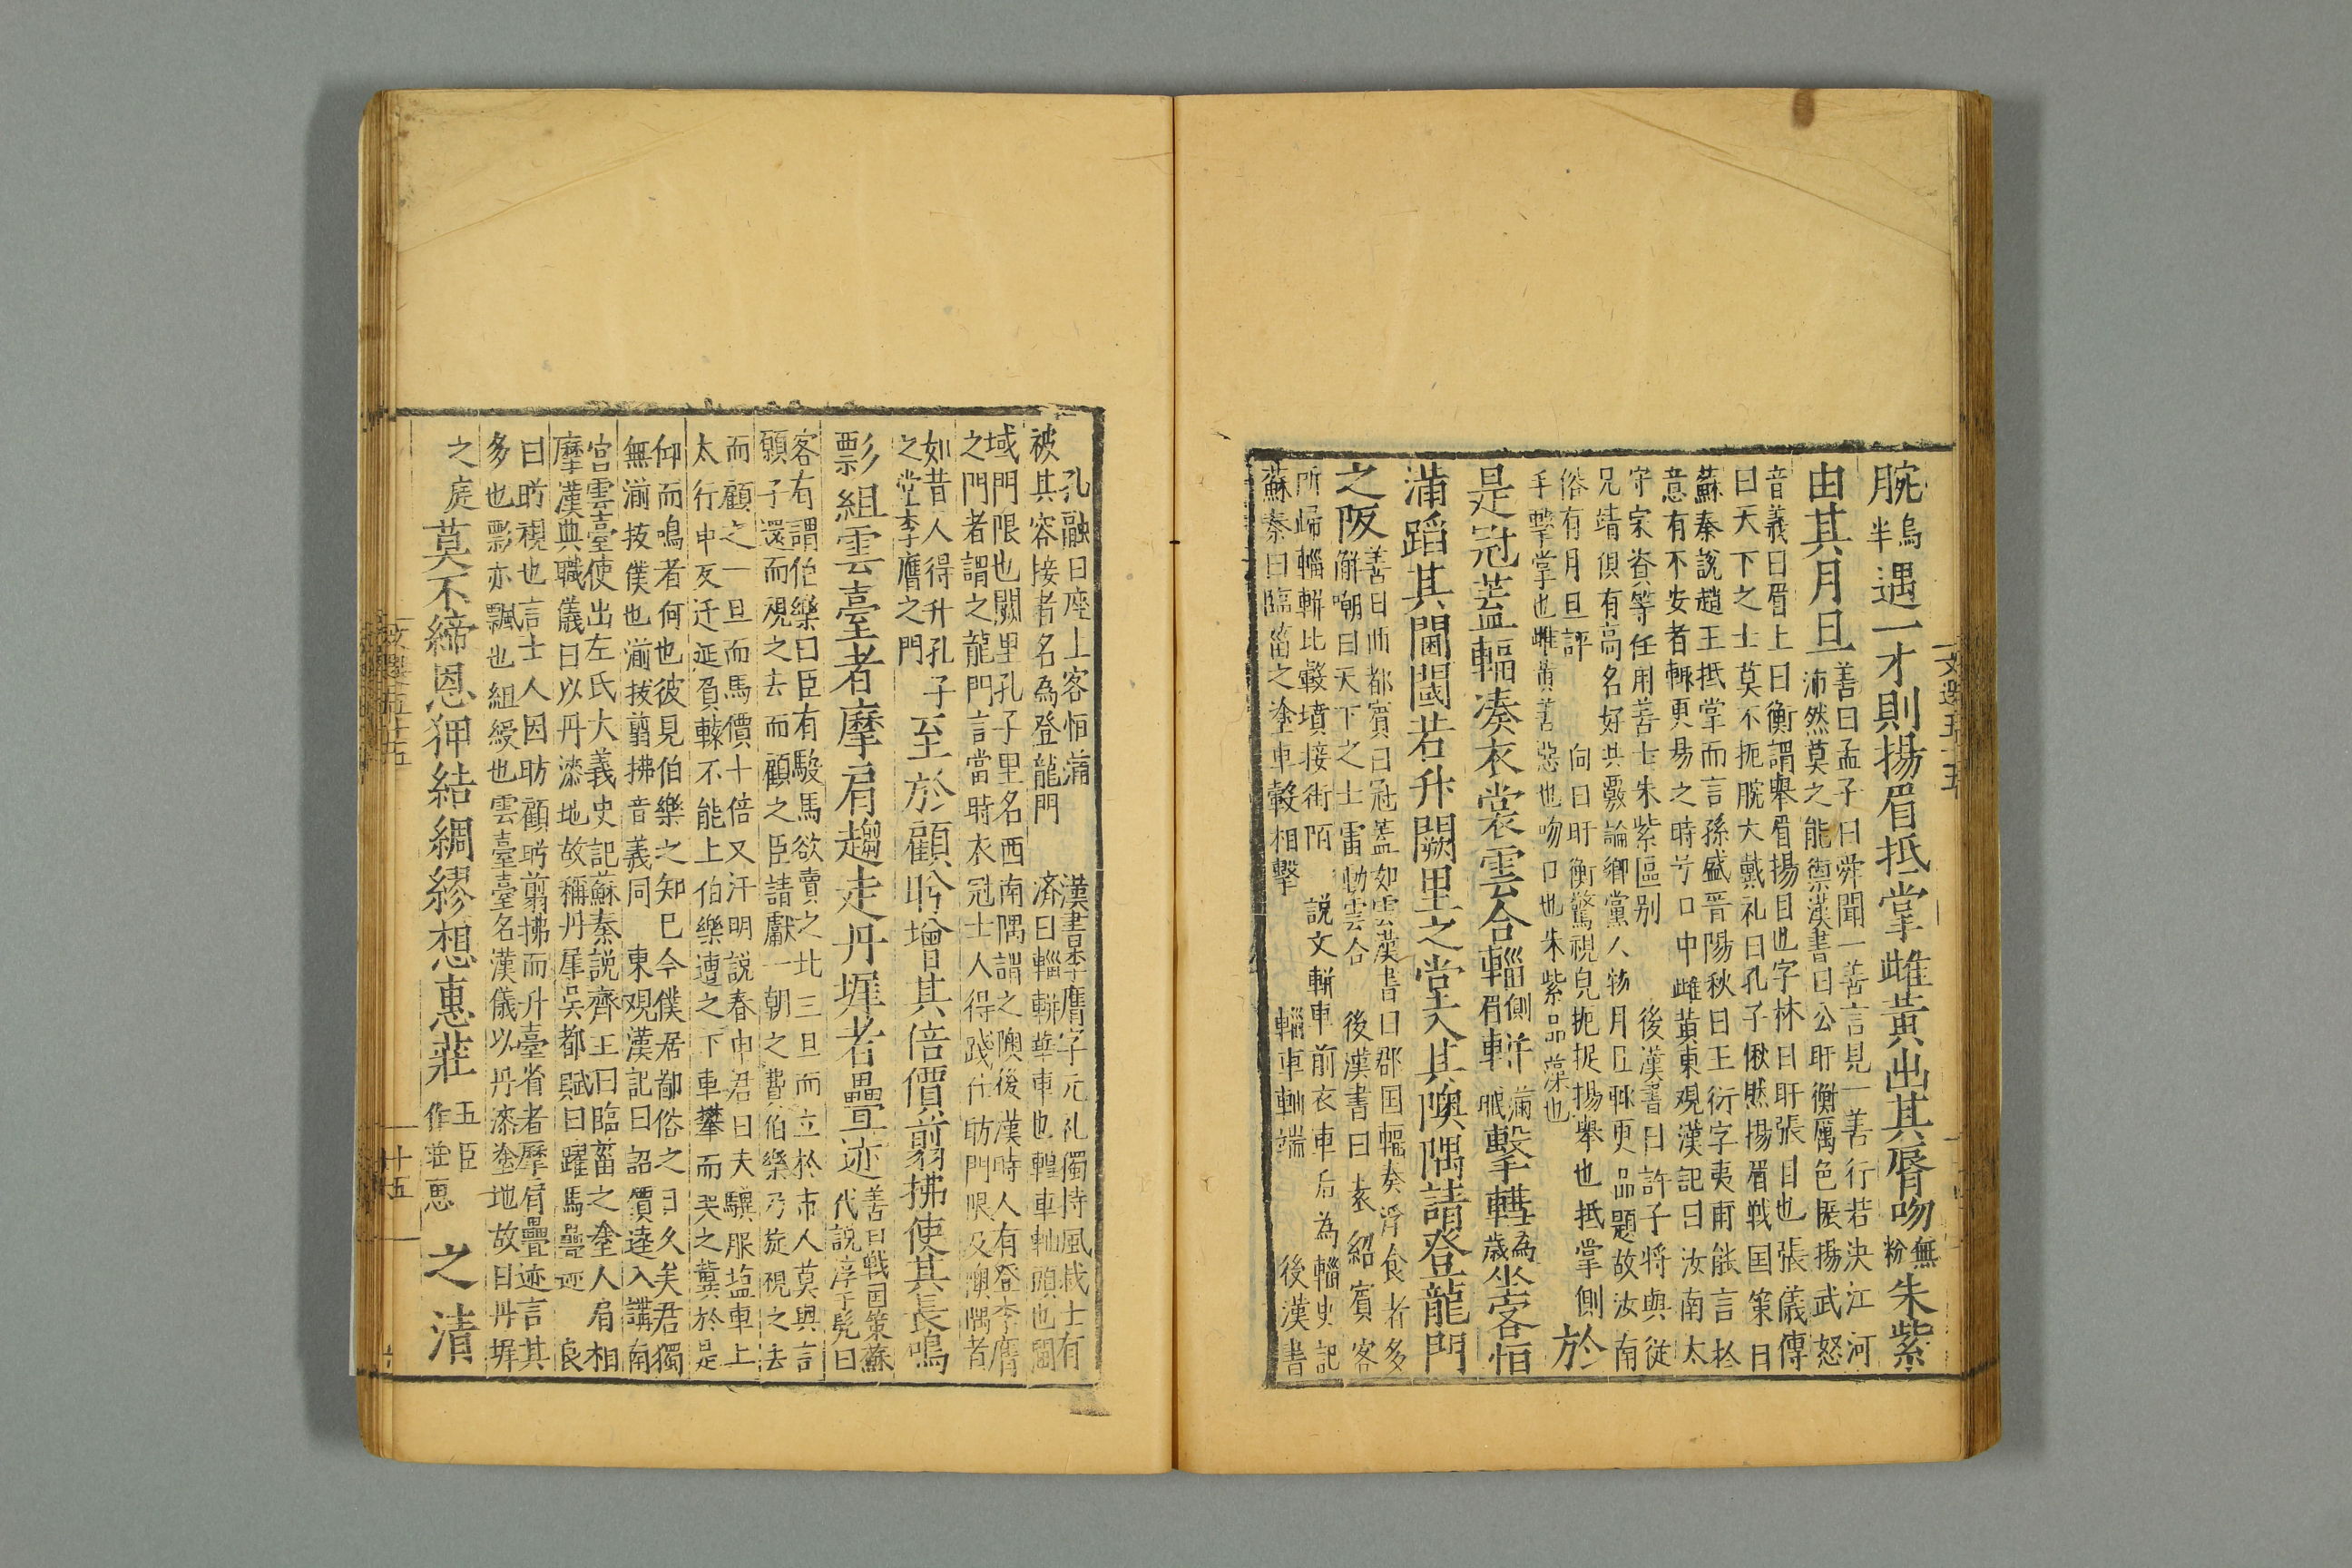 腕烏半遇一才則揚眉抵掌雌黃出其脣吻無粉朱紫
由其月旦善曰孟子曰舜聞一善言見一善行若決江河
沛然莫之能禦漢書曰公盱衡厲色振揚武怒
音義曰眉上曰衡謂舉眉揚目也字林曰盱張目也張儀傳
曰天下之士莫不扼腕大戴礼曰孔子愀然揚眉戦国策曰
蘇秦說趙王抵掌而言孫盛晋陽秋曰王衍字夷甫能言於
意有不安者輒更易之時号口中雌黃東觀漢記曰汝南太
守宗資等任用善士朱紫區别 後漢書曰許子将與従
兄靖俱有高名好共覈論鄉黨人物月旦輒更品題故汝南
俗有月旦評 向曰盱衡驚視皃扼捉揚舉也抵掌側
手擊掌也雌黃善惡也吻口也朱紫品藻也 於
是冠蓋輻湊衣裳雲合輜側眉軿蒲眠擊轊為歲坐客恒
蒲蹈其閫閾若升闕里之堂入其隩隅請登龍門
之阪善曰西都賓曰冠蓋如雲漢書曰郡国輻奏浮食者多
解嘲曰天下之士雷動雲合 後漢書曰袁紹賓客
所歸輜軿比轂墳接街陌 説文軿車前衣車后為輜史記
蘇秦曰臨菑之塗車轂相擊 輜車軸端 後漢書
孔融曰座上客恒蒲 漢書李膺字元礼獨持風裁士有
被其容接者名為登龍門 済曰輜軿華車也轊車軸頭也閫
域門限也闕里孔子里名西南隅謂之隩後漢時人有登李膺
之門者謂之龍門言當時衣冠士人得践仕昉門限及隩隅者
如昔人得升孔子
之堂李膺之門 至於顧盻增其倍價翦拂使其長鳴
影組雲臺者摩肩趨走丹墀者疊迹善曰戦国策蘇
代説淳于髡曰
客有謂伯樂曰臣有駿馬欲賣之比三旦而立於市人莫與言
願子還而視之去而顧之臣請獻一朝之費伯樂乃旋視之去
而顧之一旦而馬價十倍又汗明説春申君曰夫驥服塩車上
太行中反迁延負轅不能上伯樂遭之下車攀而哭之驥於是
仰而鳴者何也彼見伯樂之知已今僕居鄙俗之日久矣君獨
無湔拔僕也湔拔翦拂音義同 東观漢記曰詔賈逵入講南
宮雲臺使出左氏大義史記蘇秦説齊王曰臨菑之塗人肩相
摩漢典職儀曰以丹漆地故稱丹墀吳都賦曰躍馬疊迹 良
曰盻視也言士人因昉顧盻翦拂而升臺省者摩肩疊迹言其
多也影亦飄也組綬也雲臺臺名漢儀以丹漆塗地故曰丹墀
之庭莫不締恩狎結綢繆想惠莊五臣作莊惠之清
文選五十五
十五